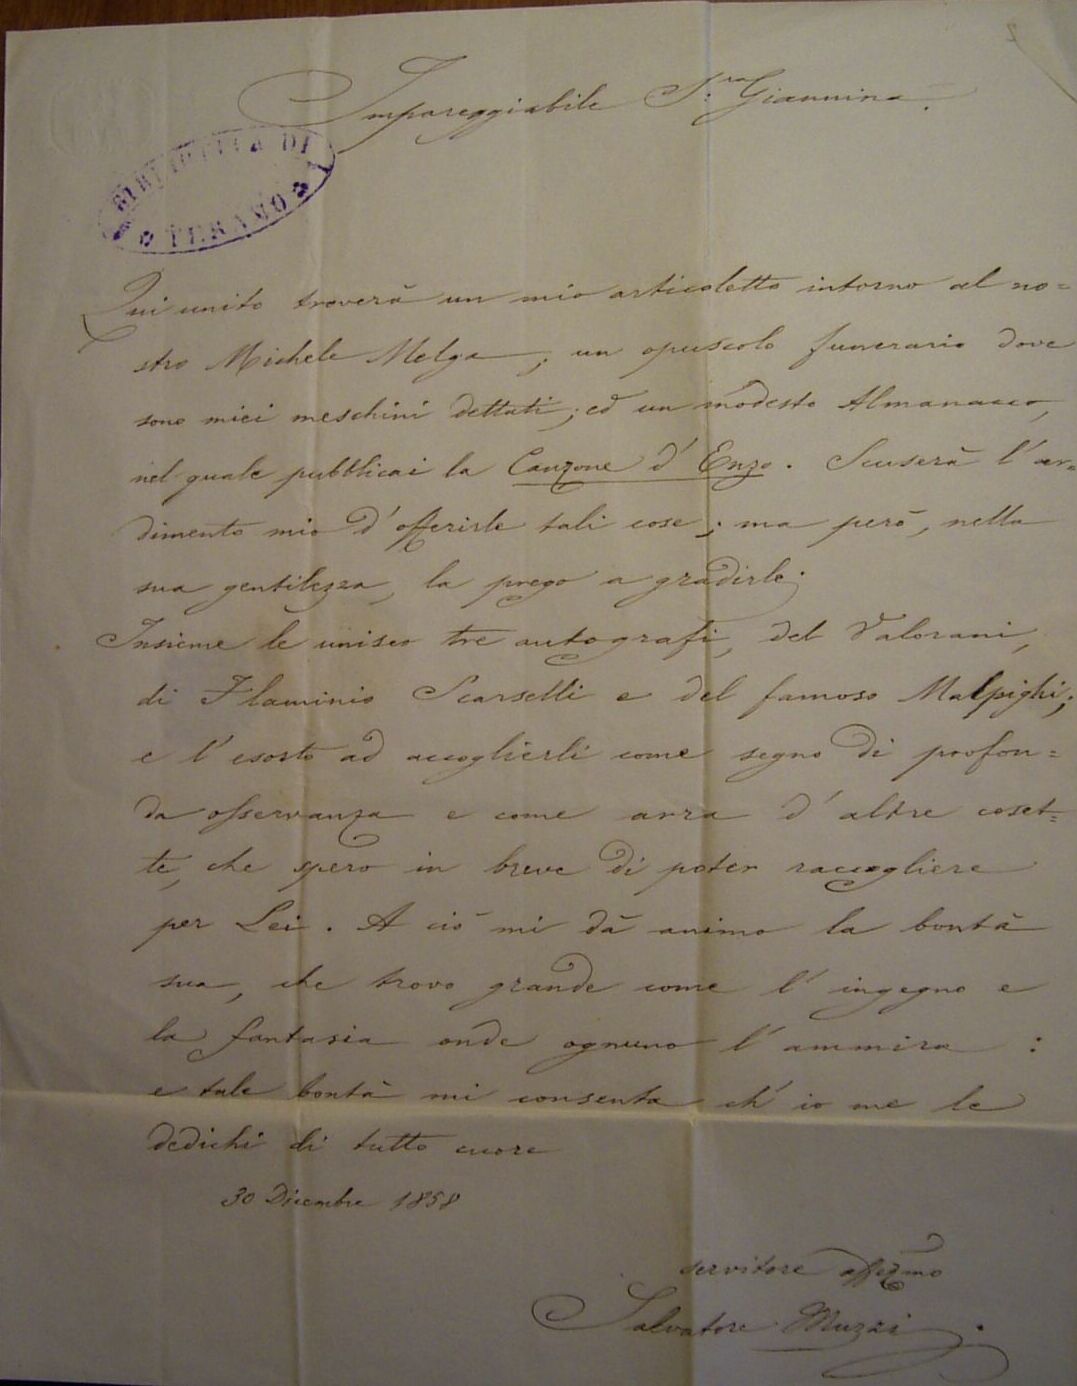 Impareggiabile S.ra Giannina.
BIBLIOTECA DI
TERAMO
Qui unito troverà un mio articoletto intorno al no=
stro Michele Melga; un opuscolo funerario dove
sono miei meschini dettati; ed un modesto Almanacco,
nel quale pubblicai la Canzone d'Enzo. Scuserà l'ar=
dimento mio d'offerirle tali cose; ma però, nella
sua gentilezza, la prego a gradirle.
Insieme le unisco tre autografi, del Valorani,
di Flaminio Scarselli e del famoso Malpighi;
e l'esorto ad accoglierli come segno di profon=
da osservanza e come arra d'altre coset=
te, che spero in breve di poter raccogliere
per Lei. A ciò mi dà animo la bontà
sua, che trovo grande come l'ingegno e
la fantasia onde ognuno l'ammira:
e tale bontà mi consenta ch'io me le
dedichi di tutto cuore
30 Dicembre 1858
servitore affezmo
Salvatore Muzzi.